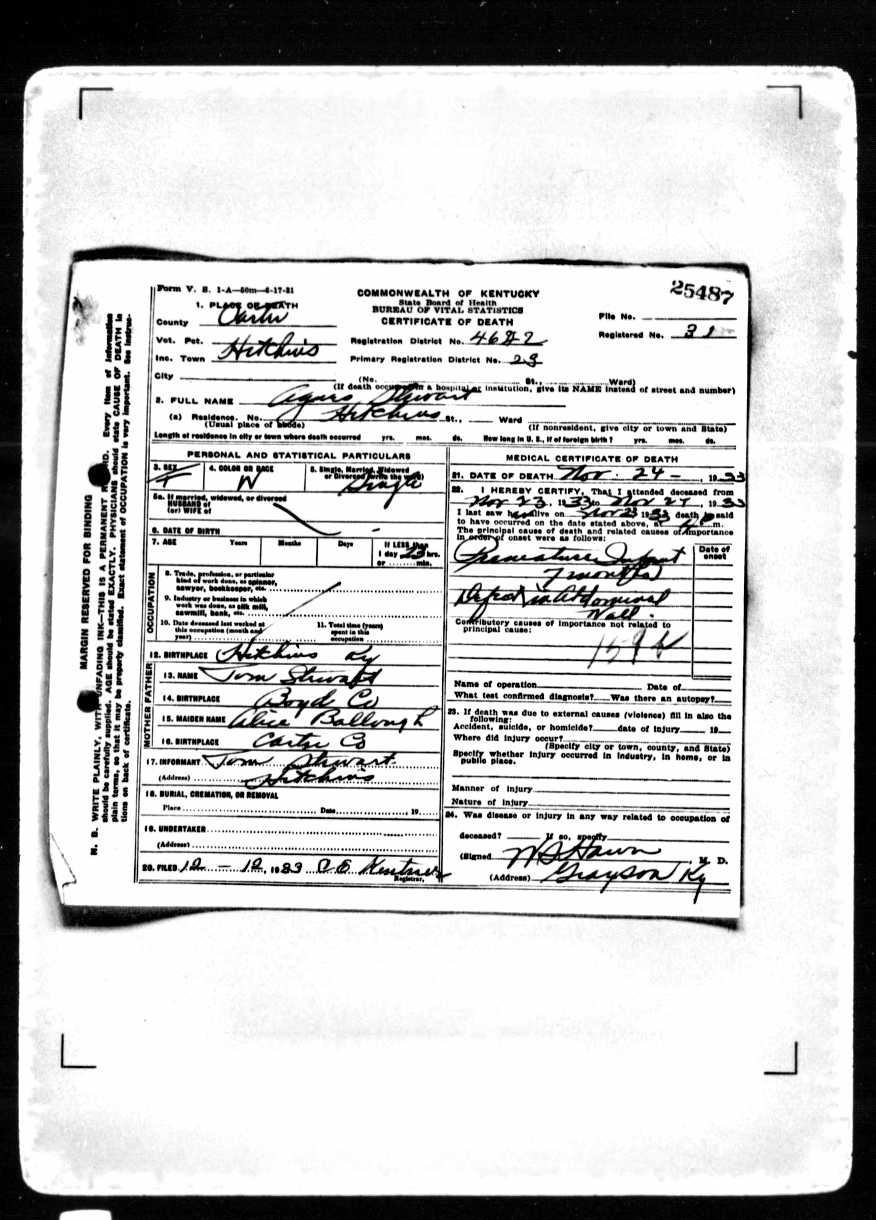 Form V. S. 1-A—50m—6-17-31
25487
COMMONWEALTH OF KENTUCKY
State Board of Health
BUREAU OF VITAL STATISTICS
CERTIFICATE OF DEATH
1. PLACE OF DEATH
County Carter
Vot. Pct.
Inc. Town Hitchins
City
Registration District No.
Primary Registration District No. 23
File No.
Registered No. 31
(No. St., Ward)
(If death occurred in a hospital or institution, give its NAME instead of street and number)
2. FULL NAME Agnes Stewart
(a) Residence. No. Hitchins St., Ward
(Usual place of abode) (If nonresident, give city or town and State)
Length of residence in city or town where death occurred yrs. mos. ds. How long in U. S., if of foreign birth? yrs. mos. ds.
PERSONAL AND STATISTICAL PARTICULARS
3. SEX F
4. COLOR OR RACE W
5. Single, Married, Widowed or Divorced (write the word) Single
5a. If married, widowed, or divorced
HUSBAND of
(or) WIFE of
6. DATE OF BIRTH
7. AGE Years Months Days If LESS than 1 day 23 hrs. or min.
OCCUPATION
8. Trade, profession, or particular kind of work done, as spinner, sawyer, bookkeeper, etc.
9. Industry or business in which work was done, as silk mill, sawmill, bank, etc.
10. Date deceased last worked at this occupation (month and year)
11. Total time (years) spent in this occupation
12. BIRTHPLACE Hitchins Ky
FATHER
13. NAME Tom Stewart
14. BIRTHPLACE Boyd Co
MOTHER
15. MAIDEN NAME Alice
16. BIRTHPLACE Carter Co
17. INFORMANT Tom Stewart
(Address) Hitchins
18. BURIAL, CREMATION, OR REMOVAL
Place Date , 19
19. UNDERTAKER
(Address)
20. FILED 12 — 12, 1933 Registrar.
MEDICAL CERTIFICATE OF DEATH
21. DATE OF DEATH Nov. 24 — , 1933
22. I HEREBY CERTIFY, That I attended deceased from
Nov 23, 1933 to Nov 24, 1933
I last saw h alive on Nov 23 1933 death is said
to have occurred on the date stated above, at 4 P m.
The principal cause of death and related causes of importance
in order of onset were as follows:
Date of onset
Premature Infant
7 months
Defect in Abdominal
Wall.
Contributory causes of importance not related to
principal cause:
Name of operation Date of
What test confirmed diagnosis? Was there an autopsy?
23. If death was due to external causes (violence) fill in also the
following:
Accident, suicide, or homicide? date of injury 19
Where did injury occur?
(Specify city or town, county, and State)
Specify whether injury occurred in industry, in home, or in
public place.
Manner of injury
Nature of injury
24. Was disease or injury in any way related to occupation of
deceased? If so, specify
(Signed , M. D.
(Address) Grayson Ky
MARGIN RESERVED FOR BINDING
N. B. WRITE PLAINLY, WITH UNFADING INK—THIS IS A PERMANENT RECORD. Every item of information
should be carefully supplied. AGE should be stated EXACTLY. PHYSICIANS should state CAUSE OF DEATH in
plain terms, so that it may be properly classified. Exact statement of OCCUPATION is very important. See instruc-
tions on back of certificate.